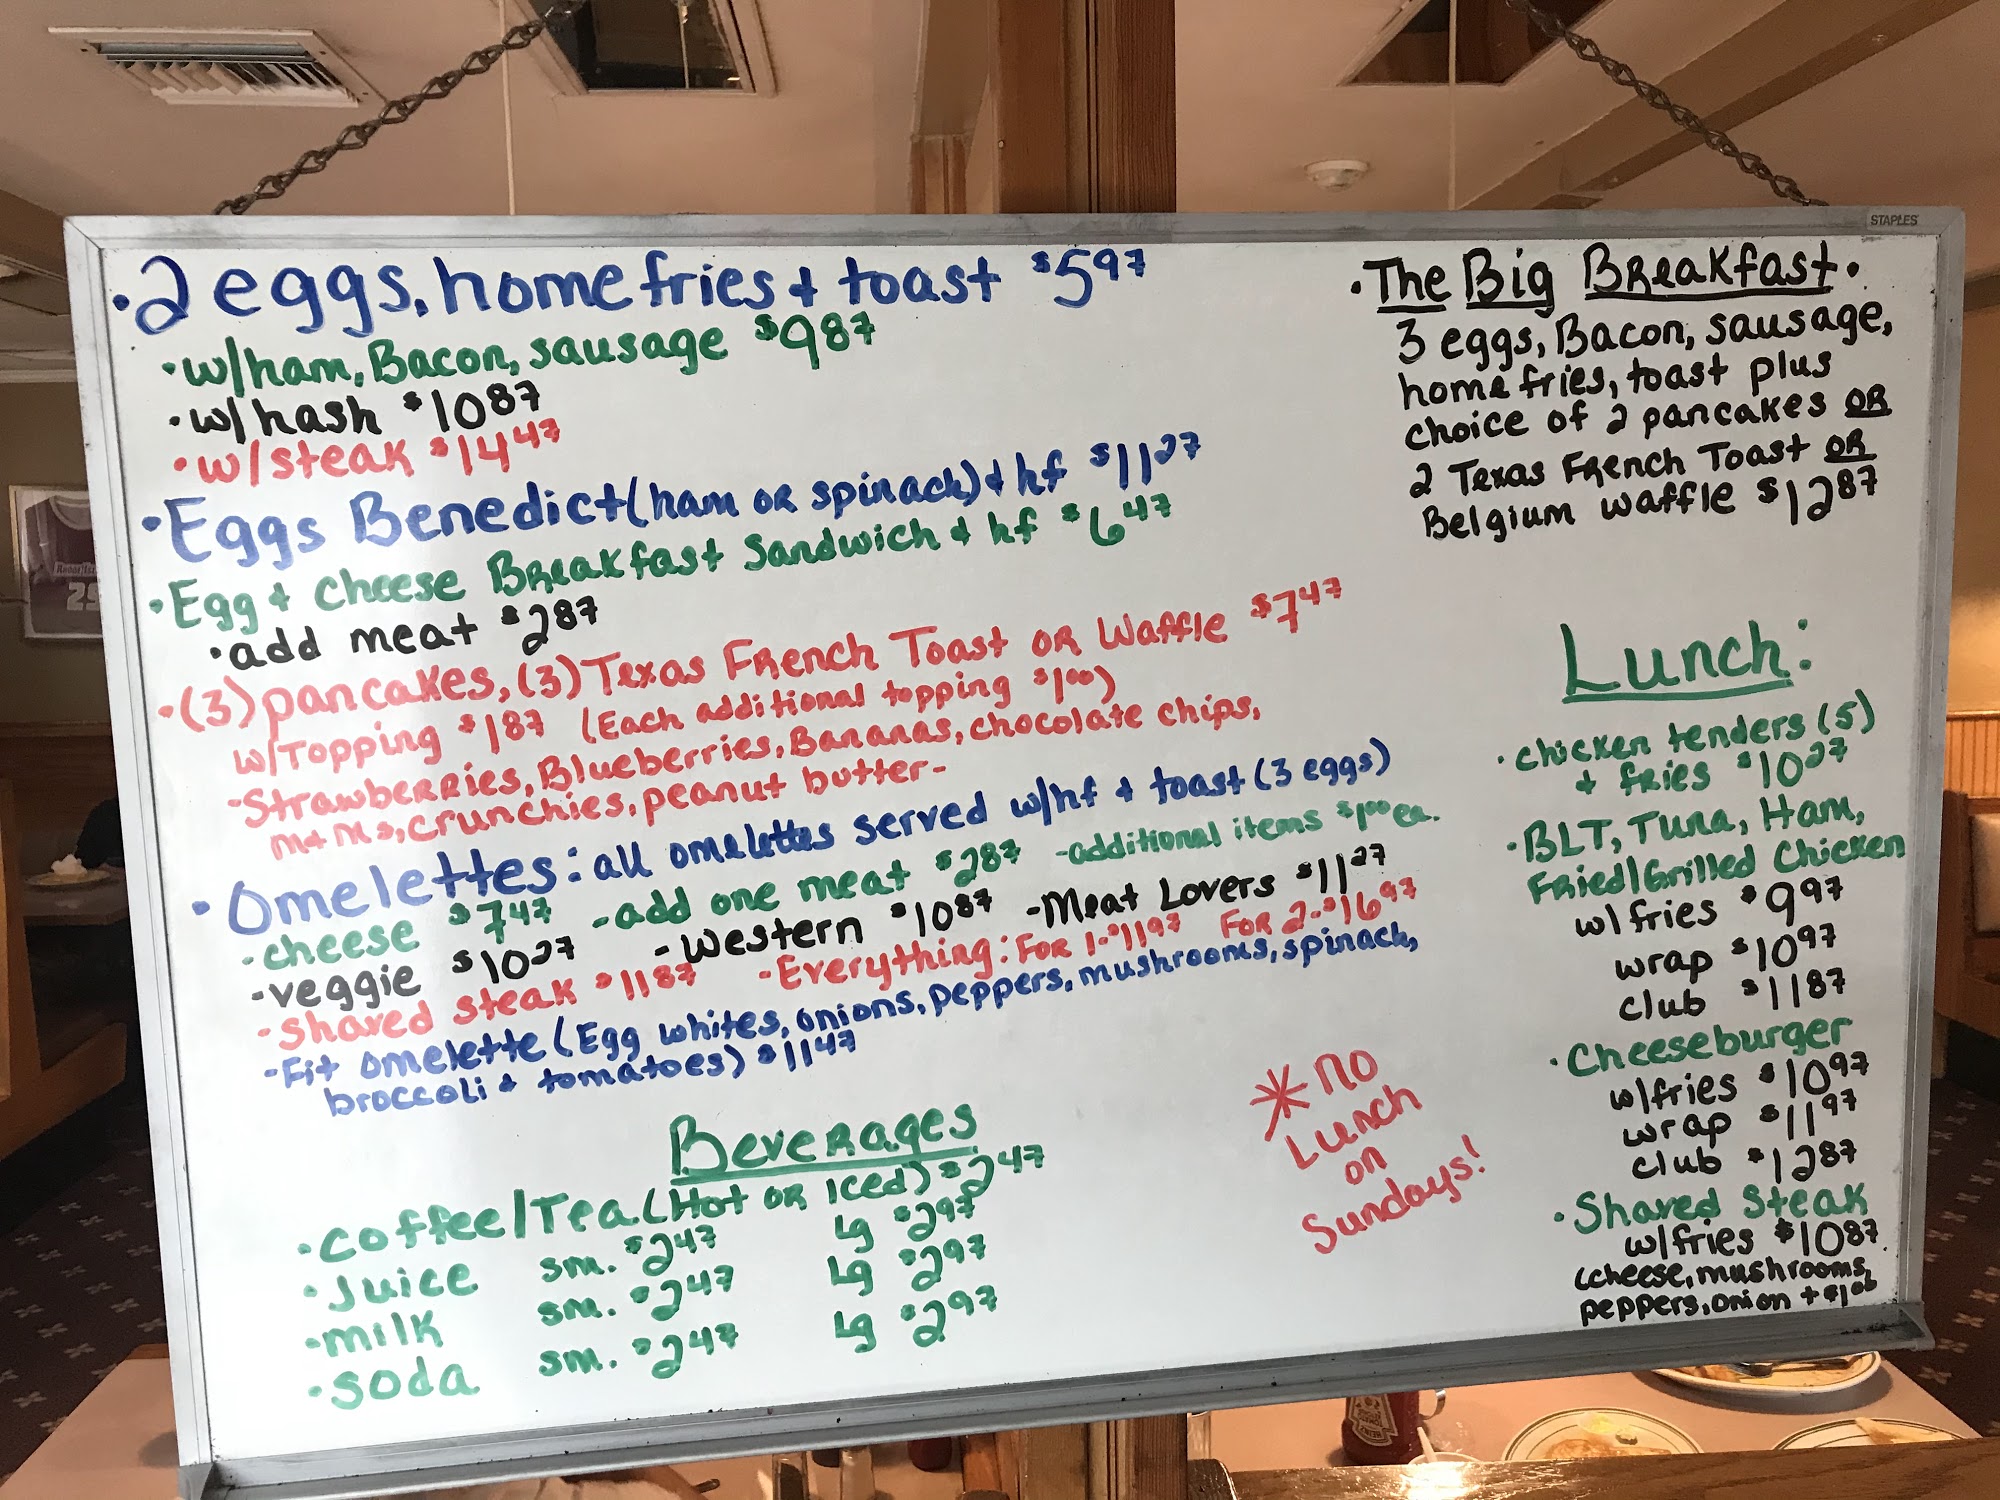 STAPLES
• 2 eggs, home fries + toast $5 97
• w/ham, Bacon, sausage $9 87
• w/hash $10 87
• w/steak $14 47
• Eggs Benedict (ham or spinach) + hf $11 27
• Egg + cheese Breakfast Sandwich + hf $6 47
• add meat $2 87
• (3) pancakes, (3) Texas French Toast or Waffle $7 47
w/Topping $1 87 (Each additional topping $1 00)
- Strawberries, Blueberries, Bananas, chocolate chips,
m+ms, crunchies, peanut butter -
• Omelettes: all omelettes served w/hf + toast (3 eggs)
- cheese $7 47 - add one meat $2 87 - additional items $1 00 ea.
- veggie $10 27 - western $10 87 - Meat Lovers $11 27
- shaved steak $11 87 - Everything: For 1 - $11 97 For 2 - $16 97
- Fit omelette (Egg whites, onions, peppers, mushrooms, spinach,
broccoli + tomatoes) $11 47
Beverages
• coffee/Tea (Hot or iced) $2 47
• Juice sm. $2 47 Lg $2 97
• milk sm. $2 47 Lg $2 97
• soda sm. $2 47 Lg $2 97
• The Big Breakfast •
3 eggs, Bacon, sausage,
home fries, toast plus
choice of 2 pancakes OR
2 Texas French Toast OR
Belgium waffle $12 87
Lunch:
• chicken tenders (5)
+ fries $10 27
• BLT, Tuna, Ham,
Fried/Grilled Chicken
w/fries $9 97
wrap $10 97
club $11 87
• Cheeseburger
w/fries $10 97
wrap $11 97
club $12 87
• Shaved Steak
w/fries $10 87
(cheese, mushrooms,
peppers, onion + $1 00
* no
Lunch
on
Sundays!
25
HEINZ